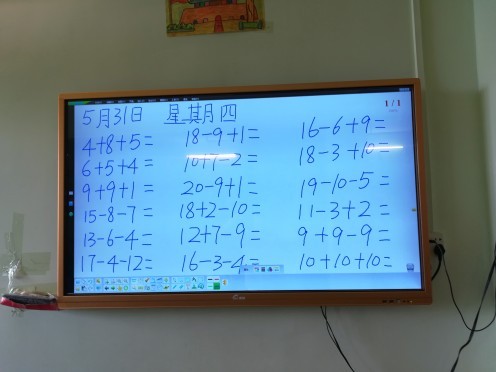 5月31日 星期四
1/1
4+8+5= 18-9+1= 16-6+9=
6+5+4= 10+7-2= 18-3+10=
9+9+1= 20-9+1= 19-10-5=
15-8-7= 18+2-10= 11-3+2=
13-6-4= 12+7-9= 9+9-9=
17-4-12= 16-3-4= 10+10+10=